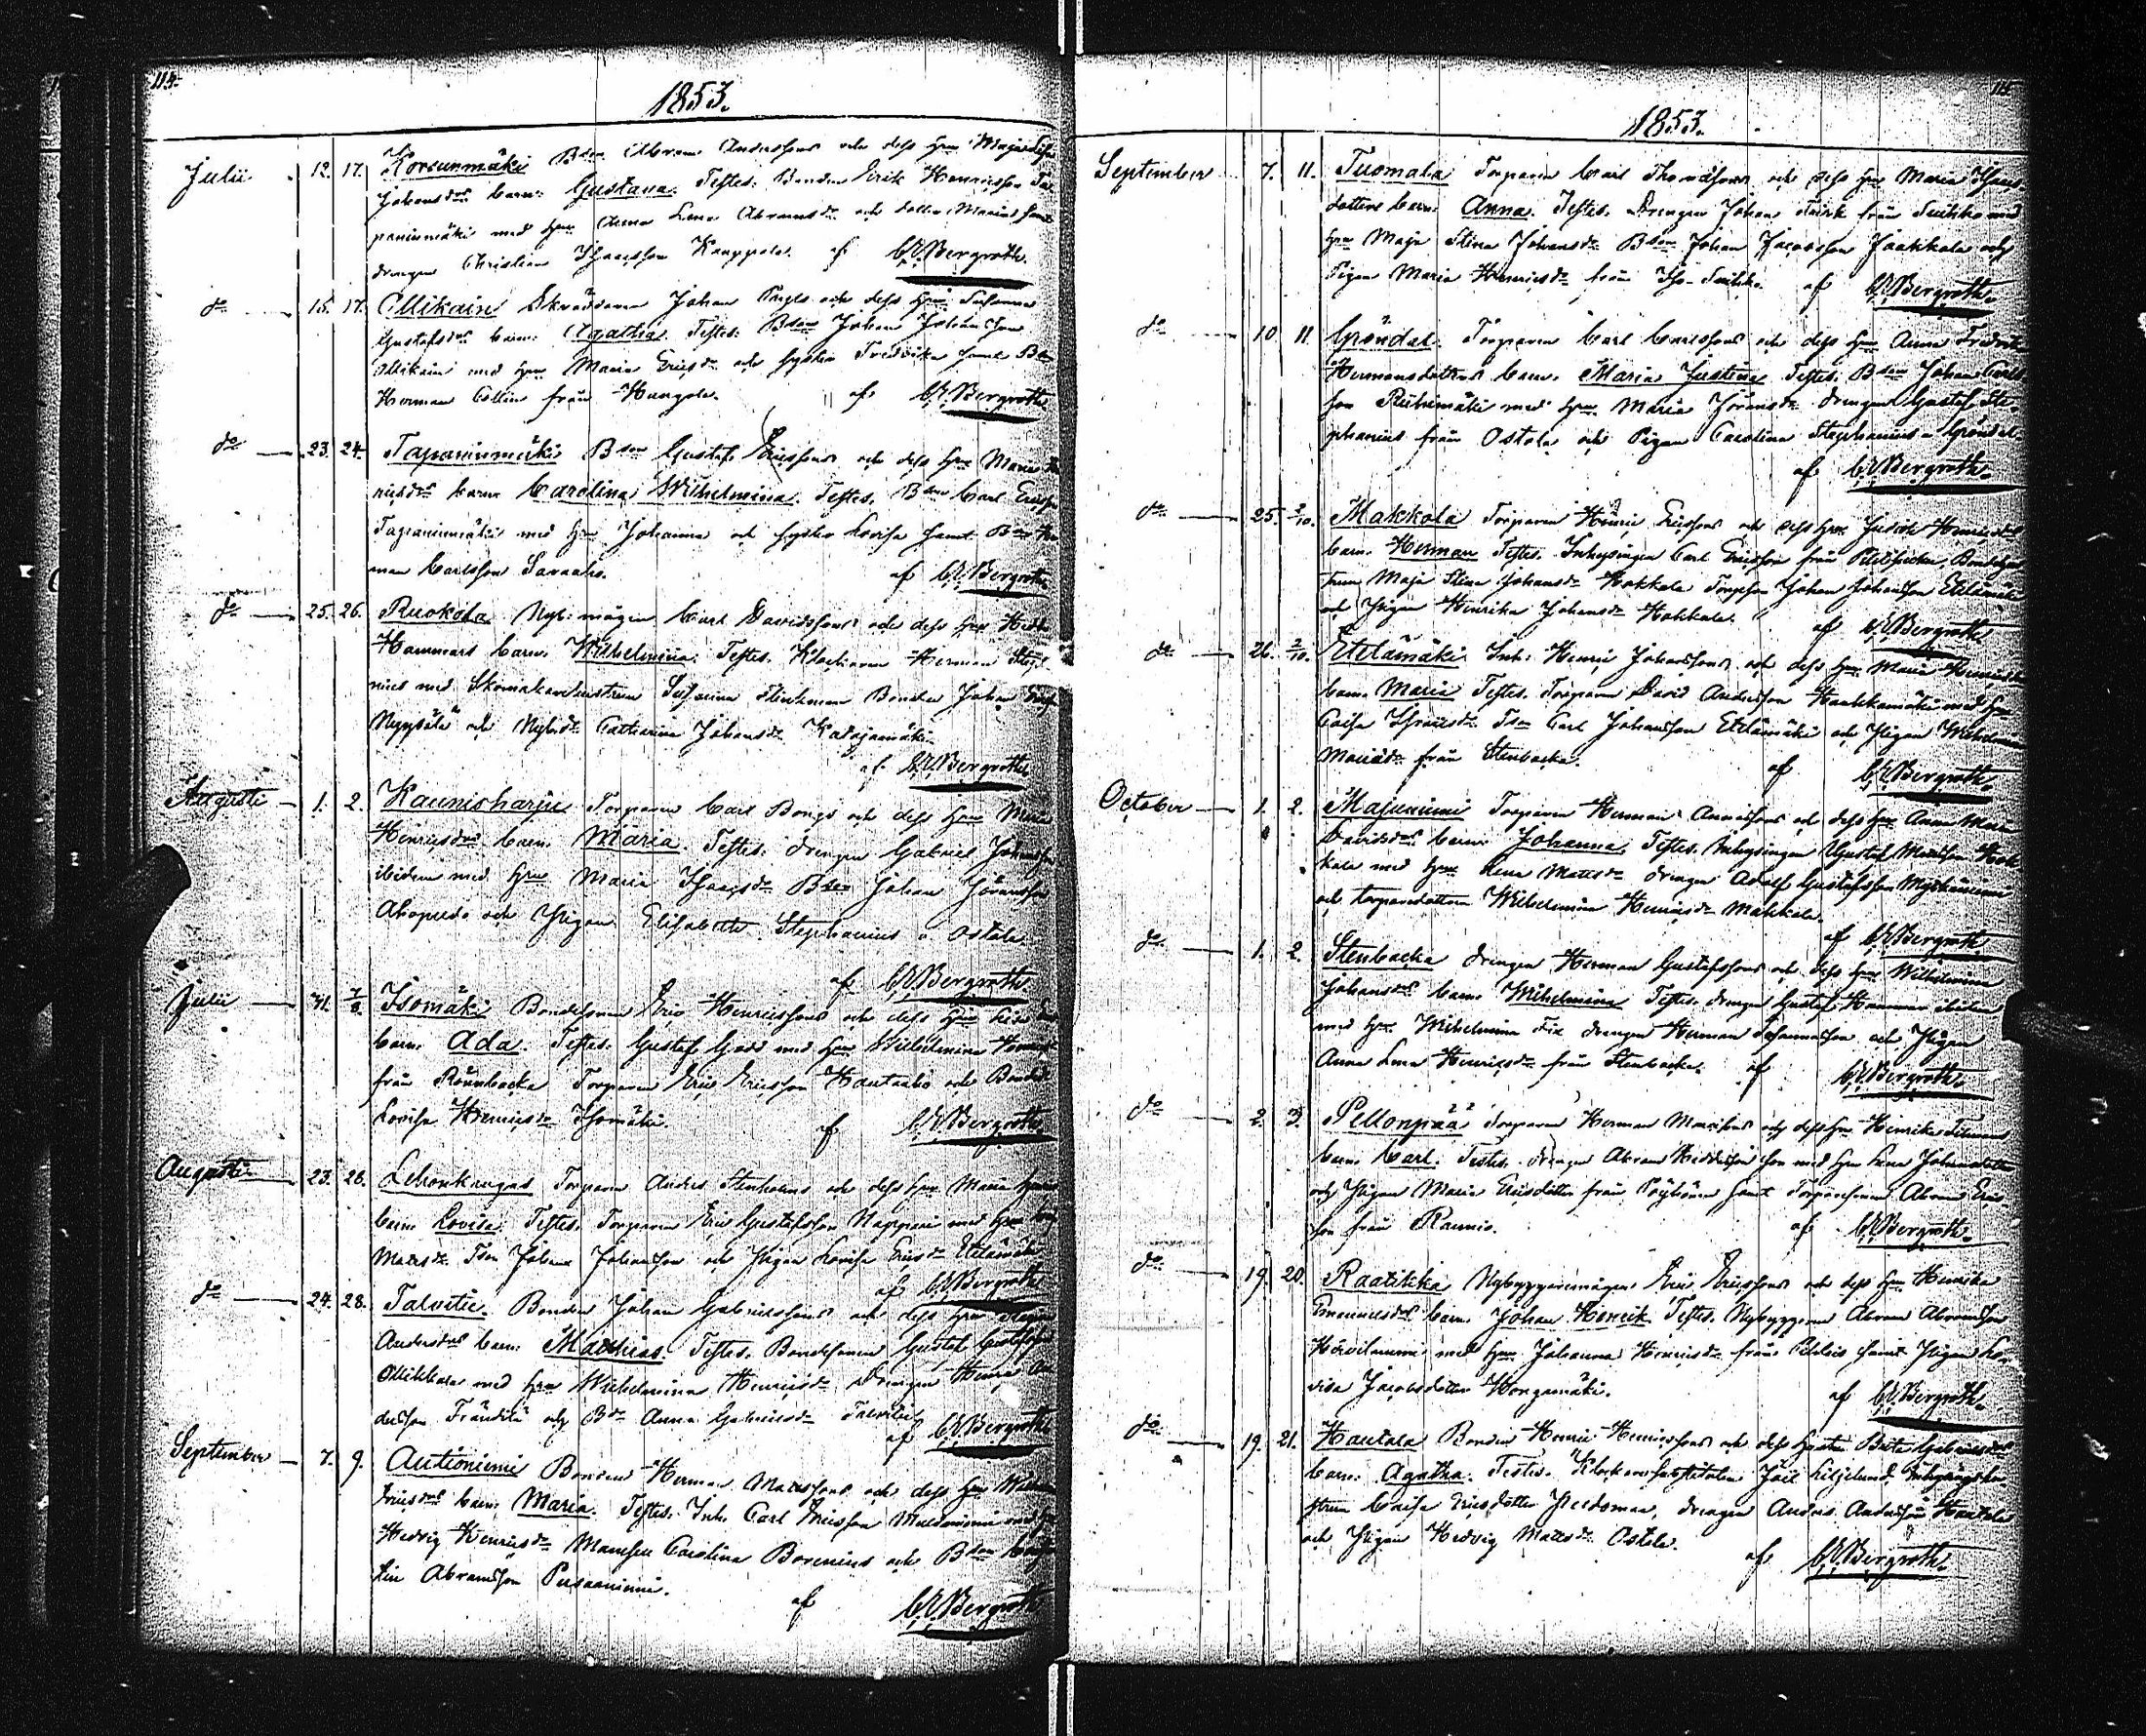 114.
1853.
Julii 12. 17. Korsunmäki Bson Abram Anderssons och dess hru Maja Lisa
Johansdrs barn: Gustava. Testes: Bonden Erik Henricsson Ta-
paninmäki med hru Anna Lena Abramsdr och samt
drengen Christian Isaacsson Kauppila. af C.E. Bergroth.
do 15. 17. Ollikain Skräddaren Johan och dess hru Susanna
Gustafsdrs barn: Agatha. Testes: Bson Johan Johansson
Ollikain med hru Maria Ericsdr och syster Fredrika samt Bson
Herman Collin från Kangola. af C.E. Bergroth.
do 23. 24. Tapaninmäki Bson Gustaf Ericssons och dess hru Maria Hen-
ricsdrs barn Carolina Wilhelmina. Testes. Bson Carl Ericsson
Tapaninmäki med hru Johanna och syster Lovisa samt Bson Her-
man Carlsson Savaalis. af C.E. Bergroth
do 25. 26. Ruokola Nyb: mågen Carl Davidssons och dess hru Hedda
Hammars barn. Wilhelmina. Testes. Klockaren Herman Steph
nius med Skomakarehustrun Susanna Bonden Johan
Nyppälä och Nybdr Catharina Johansdr Katajamäki
af C.E. Bergroth
Augusti 1. 2. Kaunisharju Torparen Carl Bongs och dess hru Maria
Henricsdrs barn. Maria. Testes: drengen Gabriel Johansson
ibidem med hru Maria Isaacsdr Bson Johan Göransson
Ahopelto och Pigan Elisabeth Stephanius a Ostola
af C.E. Bergroth
Julii 31. 7/8. Isomäki Bondesonen Eric Henricssons och dess hru Lisa
barn. Ada. Testes. Gustaf med hru Wilhelmina
från Rönnbacka Torparen Eric Ericsson Hautaaho och Bonddr
Lovisa Henricsdr Isomäki. af C.E. Bergroth.
Augusti 23. 28. Lehonkangas Torparen Anders Stenholms och dess hru Maria
barn Lovisa. Testes. Torparen Eric Gustafsson Nappari med hru
Matsdr Tson Johan Johansson och Pigan Lovisa Ericsdr Etelämäki
af C.E. Bergroth
do 24. 28. Talvitie. Bonden Johan Gabrielssons och dess hru
Andersdrs barn. Matthias. Testes. Bondesonen Gustaf Gustafsson
Ollikkala med hru Wilhelmina Henricsdr Drengen Henric An-
dersson Fränditä och Bdr Anna Gabrielsdr Talvitie
af C.E. Bergroth
September 7. 9. Autioniemi Bonden Herman Matssons och dess hru
Ericsdrs barn. Maria. Testes. Inh. Carl Ericsson med hru
Hedvig Henricsdr Mamsell Carolina Borenius och Bson
Abramsson Pusaaniemi.
af C.E. Bergroth
115
1853.
September 7. 11. Tuomala Torparen Carl Thomassons och dess hru Maria Isaacs-
dotters barn. Anna. Testes. Drengen Johan från Suihko med
hru Maja Stina Johansdr Bson Johan Jacobsson Jaakkola och
Pigan Maria Henricsdr från Iso-Suihko. af C.E. Bergroth.
do 10 11 Gröndal. Torparen Carl Carlssons och dess hru Anna Fredrika
Hermansdotters barn. Maria Justina Testes. Bson Johan Carls-
son Riihimäki med hru Maria Göransdr drengen Gustaf Ste-
phanius från Ostola och Pigan Carolina Stephanius a Gröndal.
af C.E. Bergroth.
do 25. 2/10. Makkola Torparen Henric Ericssons och dess hru Judith Henricsdrs
barn. Herman Testes. Inhysingen Carl Ericsson från
Maja Stina Johansdr Hokkala Torpson Johan Johansson Etelämäki
och Pigan Henrika Johansdr Hokkala. af C.E. Bergroth
do 26. 2/10. Etelämäki. Inh: Henric Johanssons och dess hru Maria Henricsdrs
barn. Maria Testes. Torparen David Andersson Haukkamäki med hru
Caisa Isaacsdr Tson Carl Johansson Etelämäki och Pigan Wilhelmina
från Stenbacka. af C.E. Bergroth.
October 1. 2. Majaniemi Torparen Herman och dess hru Anna Maria
Davidsdrs barn. Johanna. Testes. Inhysingen Gustaf Matsson Hok
kala med hru Lena Matsdr drengen Adolf Gustafsson
och torparedottren Wilhelmina Henricsdr Makkola.
af C.E. Bergroth
do 1. 2. Stenbacka drengen Herman Gustafssons och dess hru Wilhelmina
Johansdrs barn. Wilhelmina Testes. drengen Gustaf Hammar ibidem
med hru Wilhelmina drengen Herman Johannesson och Pigan
Anna Lena Henricsdr från Stenbacka. af C.E. Bergroth.
do 2. 3. Pellonpää torparen Herman och dess hru Henrika
barn. Carl. Testes. Drengen Abram med hru Lena Johansdotter
och Pigan Maria Ericsdotter från Pöyhönen samt Torparesonen Abram Erics-
son från Raunis. af C.E. Bergroth.
do 19. 20. Raatikka Nybyggaremågen Eric Ericssons och dess hru Henrika
barn. Johan Henrik Testes. Nybyggaren Abram Abramsson
med hru Johanna Henricsdr från samt Pigan Lo-
visa Jacobsdotter Hongamäki. af C.E. Bergroth.
do 19. 21. Hautala Bonden Henric Henricssons och dess hustru Brita Gabrielsdrs
barn. Agatha. Testes. Klockaresubstituten Joël Liljelund, Inhysings hu-
strun Caisa Ericsdotter drengen Anders Andersson Hautala
och Pigan Hedvig Matsdr Ostola. af C.E. Bergroth.